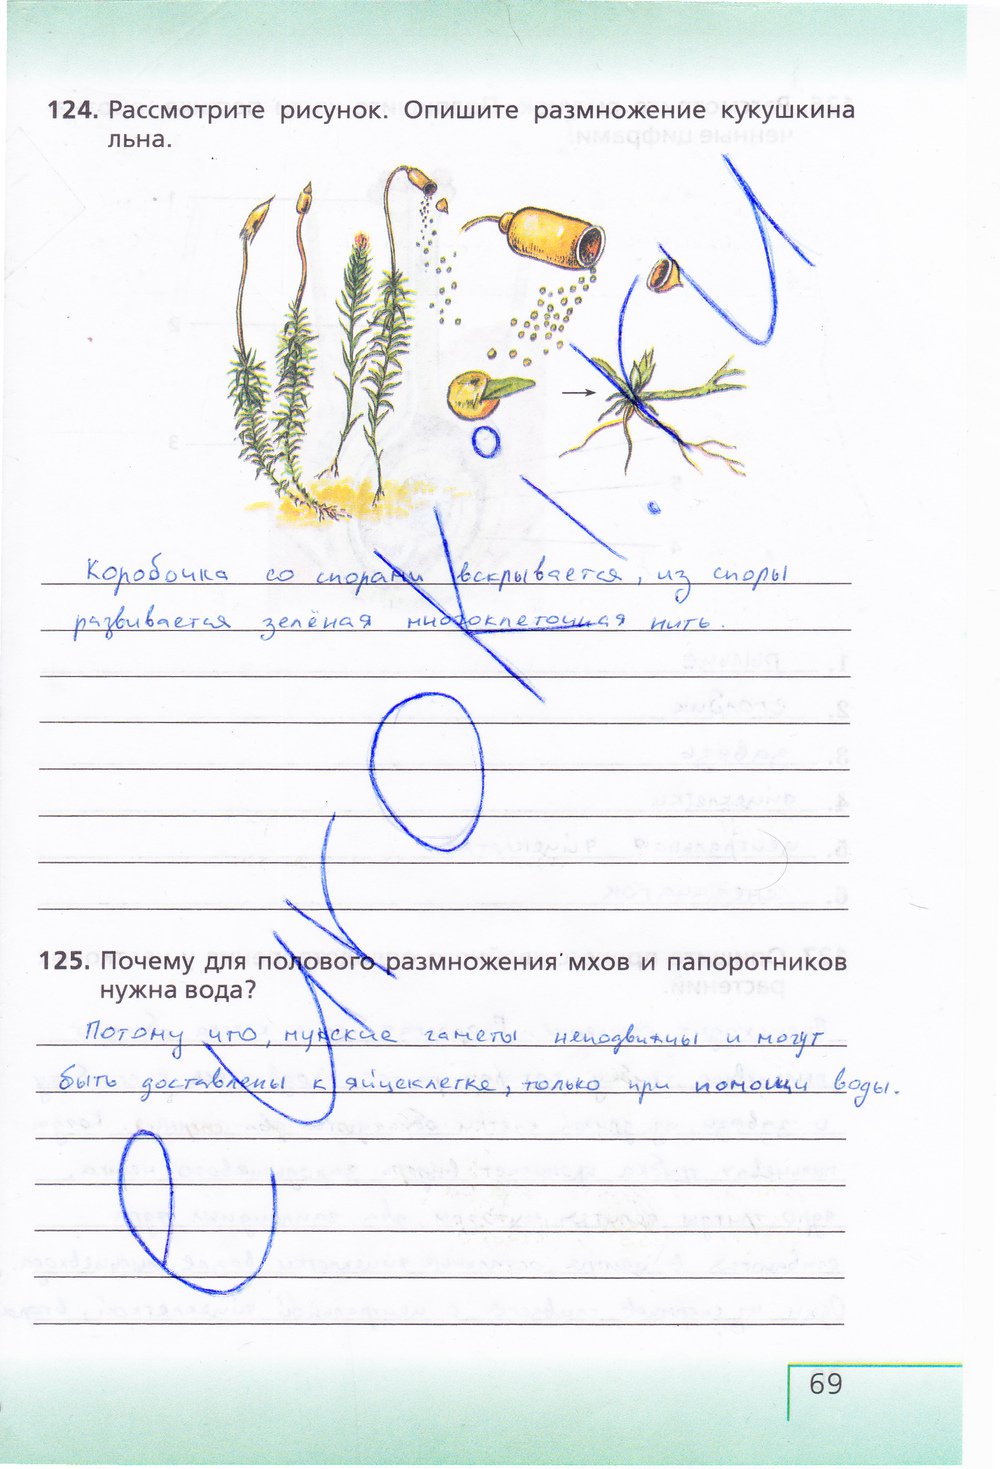 124. Рассмотрите рисунок. Опишите размножение кукушкина
льна.
Коробочка со спорами вскрывается, из споры
развивается зелёная многоклеточная нить.
125. Почему для полового размножения мхов и папоротников
нужна вода?
Потому что, мужские гаметы неподвижны и могут
быть доставлены к яйцеклетке, только при помощи воды.
69